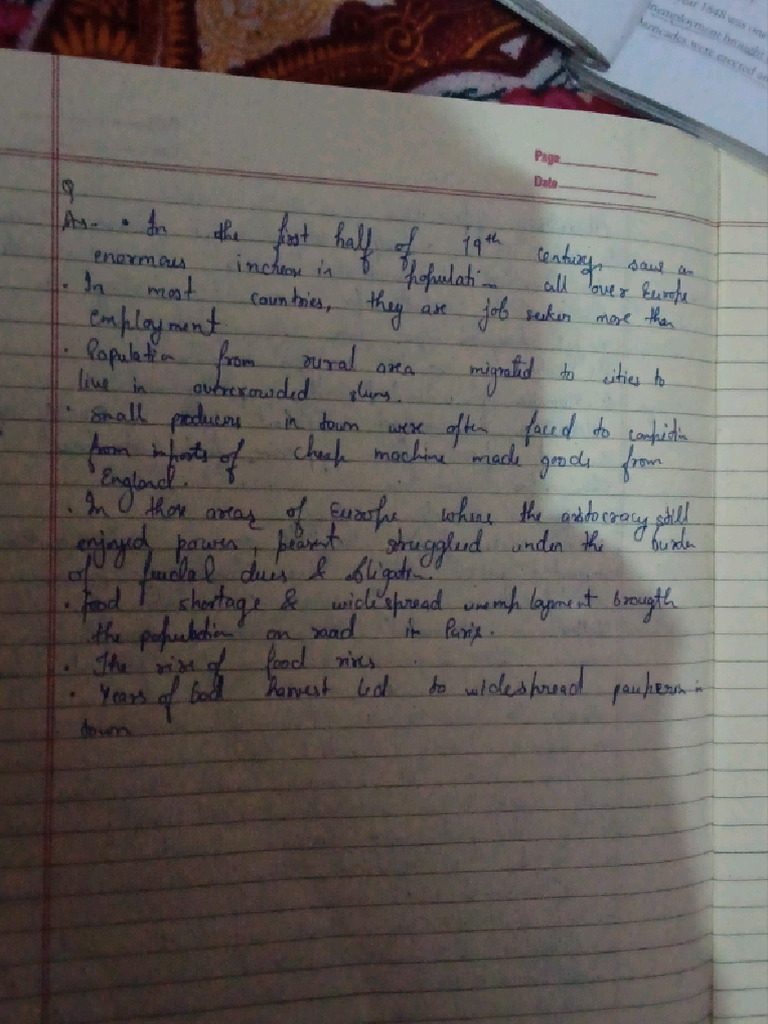 year 1848 was one
unemployment brought
barricades were erected a
Page
Date
Q
As. • In the first half of 19th century saw an
enormous increase in populati all over Europe
• In most countries, they are job seeker more than
employment
• Population from rural area migrated to cities to
live in overcrowded slums.
• Small producers in town were often faced to
from imports of cheap machine made goods from
England.
• In those areas of Europe where the aristocracy still
enjoyed power, peasent struggled under the burden
of feudal dues & obligation.
• food shortage & widespread unemployment brougth
the population on road in Paris.
• The rise of food
• Years of bad harvest led to widespread pauperism in
town